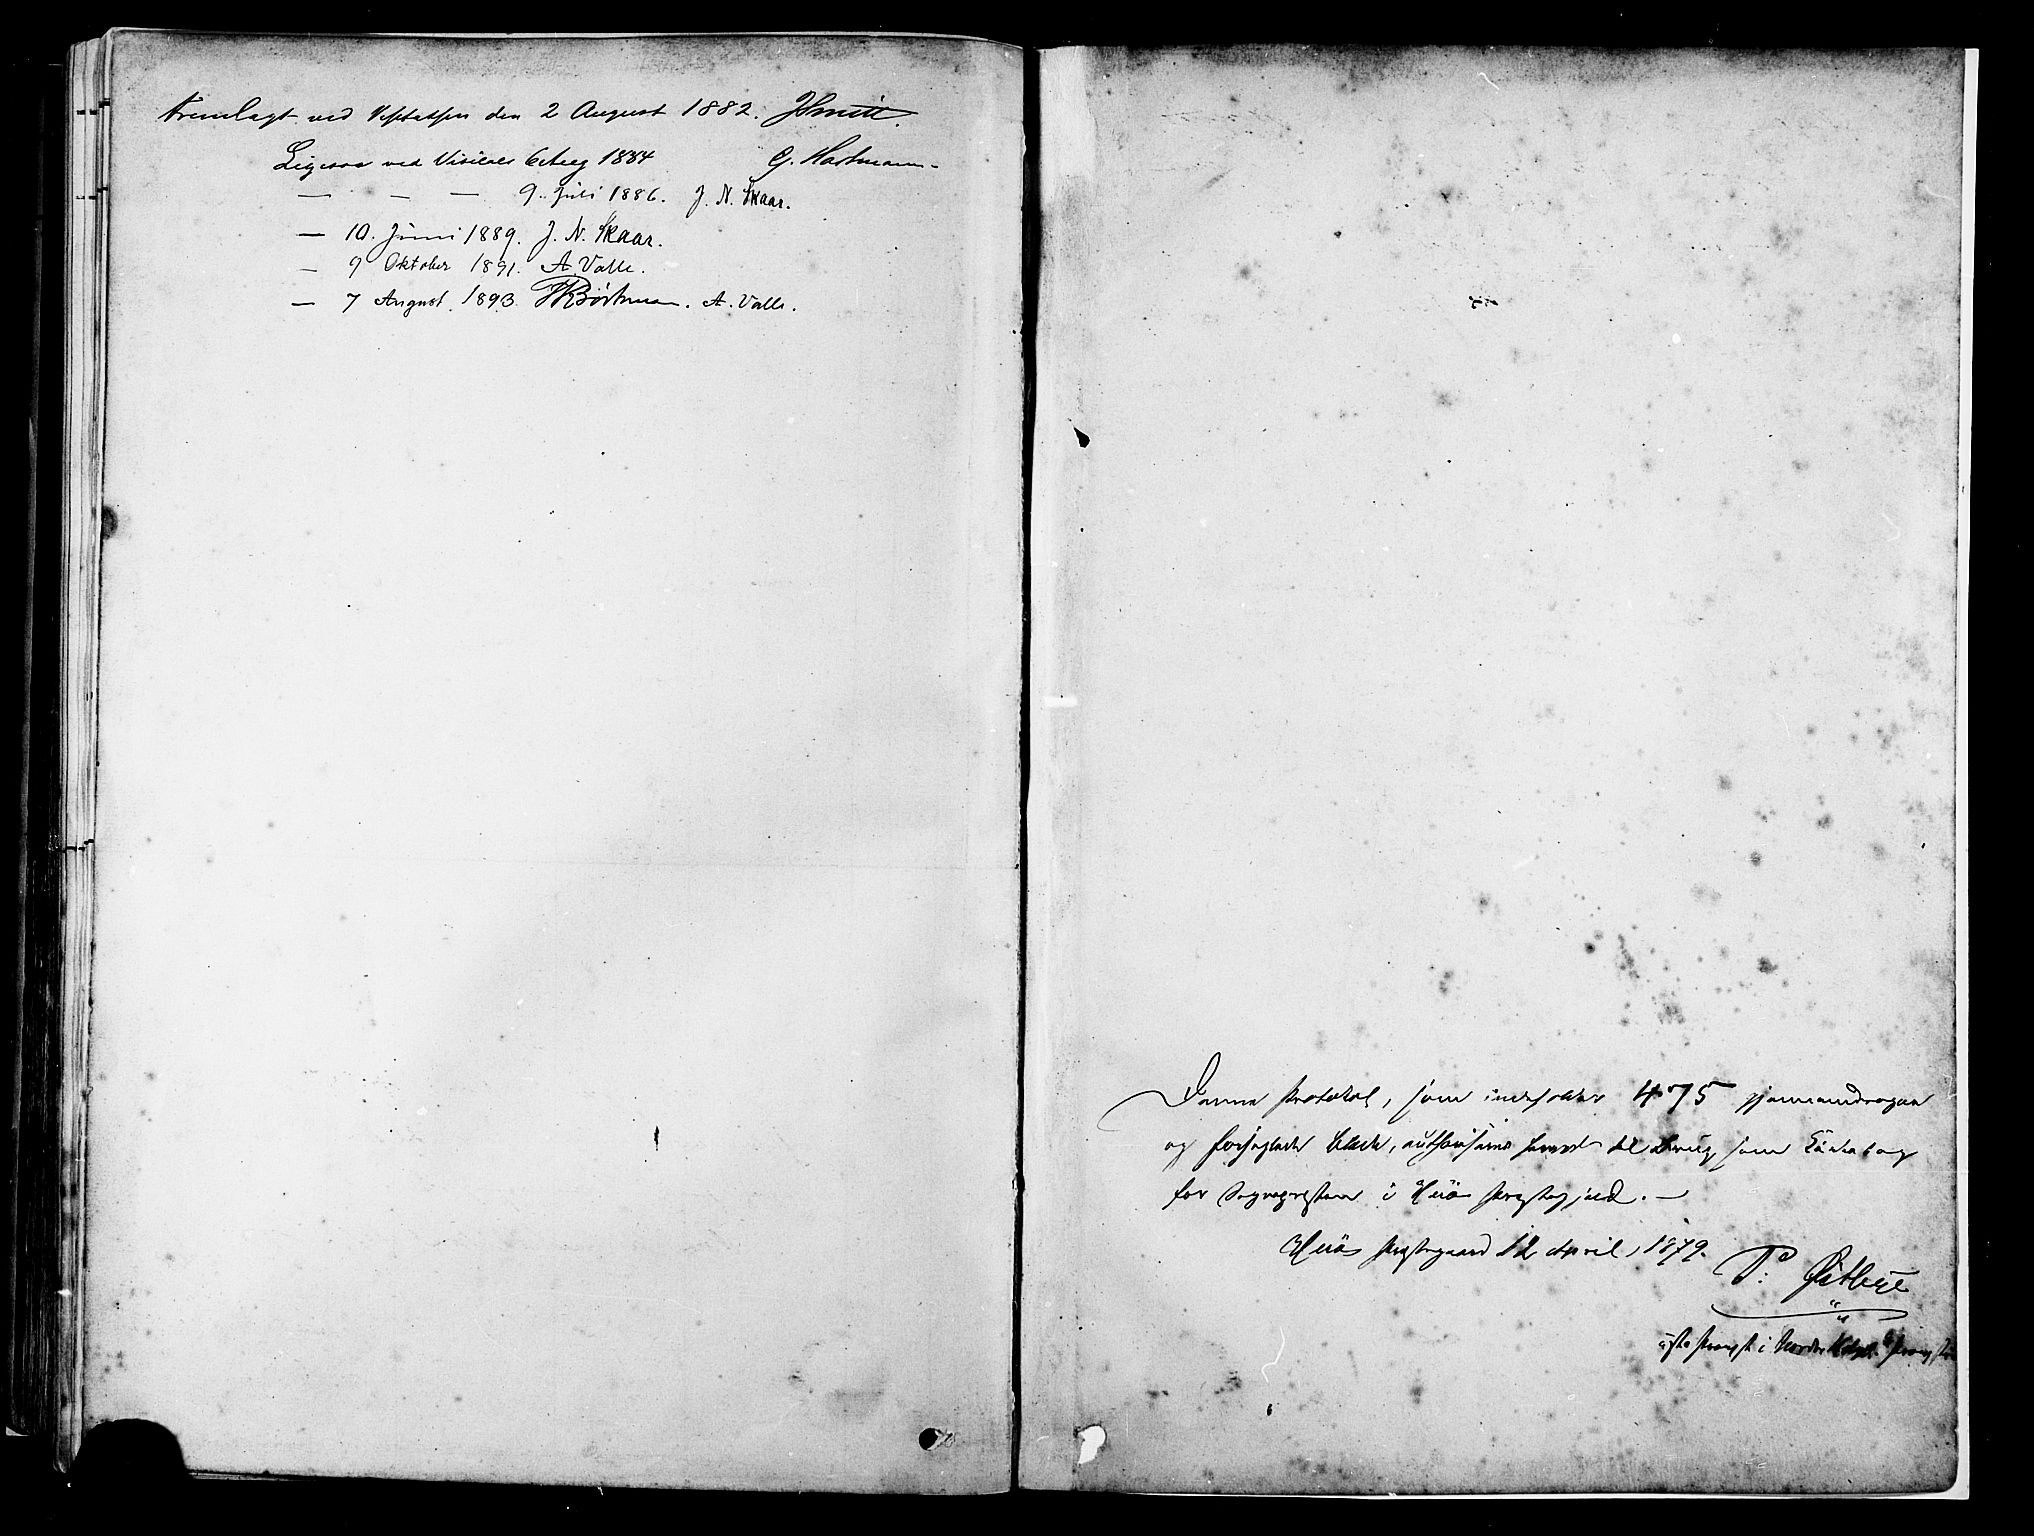 Fremlagt ved Visitatsen den 2 August 1882. JSmitt.
Ligesaa ved Visitats 1884 G. Hartmann
— — — 9. Juli 1886. J. N. Skaar.
— 10. Juni 1889. J. N. Skaar.
— 9 Oktober 1891. A. Valle.
— 7 August 1893. Bøckman. A. Valle.
Denne Protokol, som indeholder 475 gjennemdragne
og forseglede Blade, authoriseres herved til Brug som Kirkebog
for Sognepresten i Herø Prestegjeld. —
Herø Prestegaard 12 April 1879.
P:
i Nordre